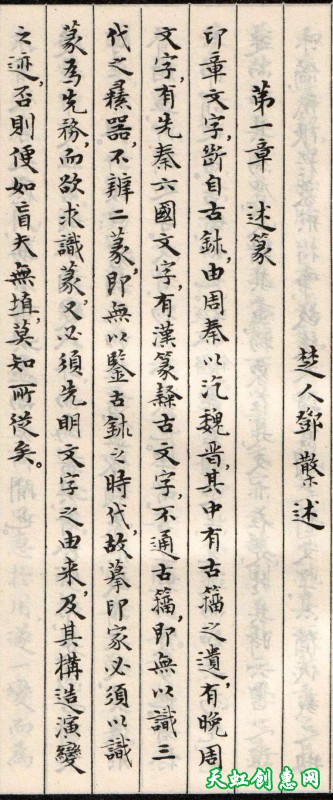 楚人鄧散木述
第一章 述篆
印章文字,斷自古鉥,由周秦以汔魏晋,其中有古籀之遺,有晚周
文字,有先秦六國文字,有漢篆隸古文字,不通古籀,即無以識三
代之彝器,不辨二篆,即無以鑒古鉥之時代,故摹印家必須以識
篆為先務,而欲求識篆,又必須先明文字之由来,及其構造演變
之迹,否則便如盲夫無埴,莫知所從矣。
天虹创惠网